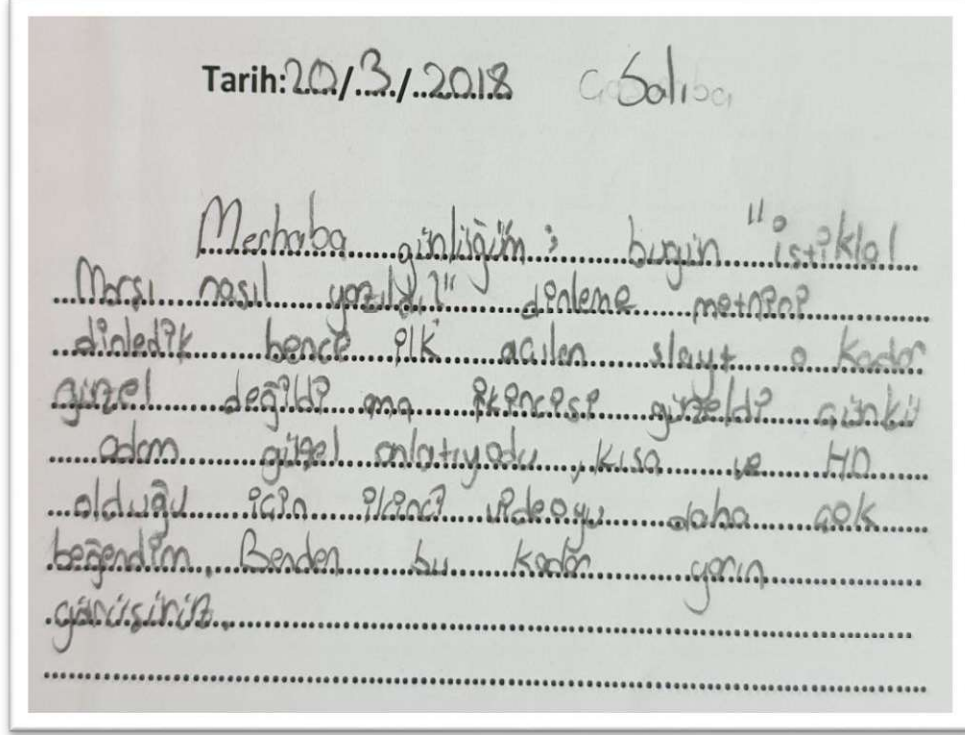 Tarih:20/3/2018 Salı
Merhaba günlüğüm; bugün "istiklal
Marşı nasıl yazıldı?" dinleme metnini
dinledik bence ilk açılan slayt o kadar
güzel değildi ama ikincisi güzeldi çünkü
adam güzel anlatıyodu, kısa ve HD
olduğu için ikinci videoyu daha çok
beğendim. Benden bu kadar yarın
görüşürüz.